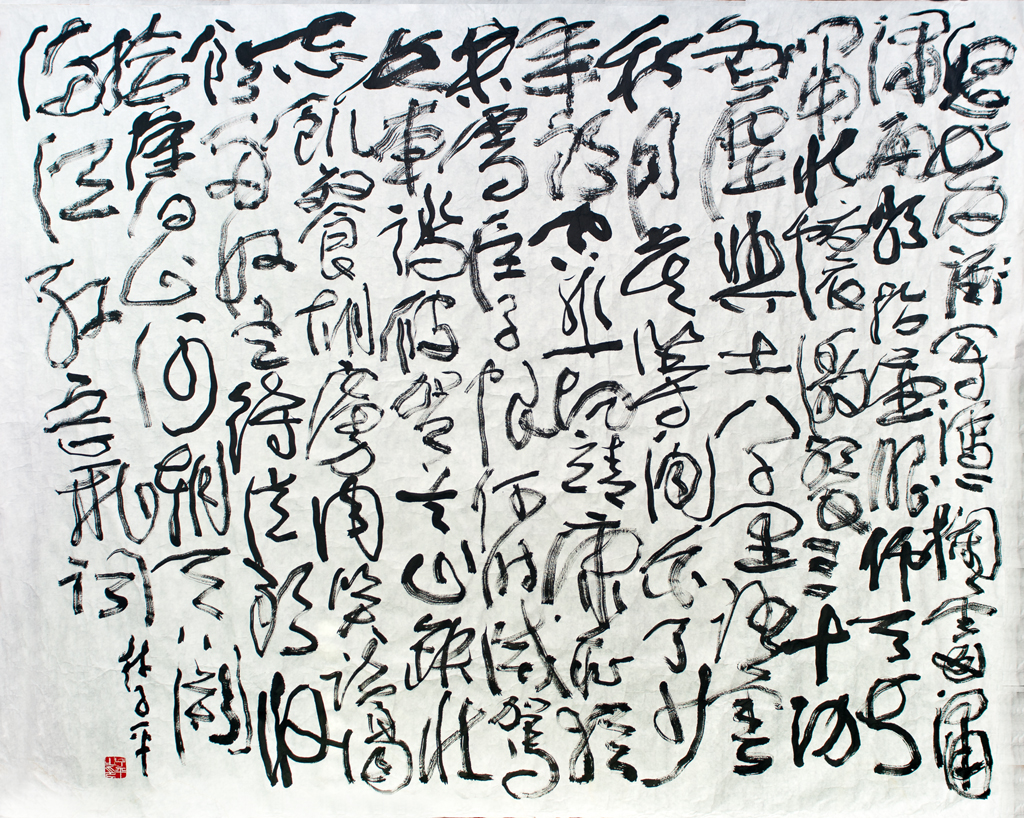 怒髮衝冠憑欄處瀟
瀟雨歇抬望眼仰天長
嘯壯懷激烈三十功
名塵與土八千里路雲
和月莫等閑白了少
年頭空悲切靖康恥猶
未雪臣子恨何時滅駕
長車踏破賀蘭山缺壯
志飢餐胡虜肉笑談渴
飲匈奴血待從頭收
拾舊山河朝天闕
滿江紅岳飛詞
子平